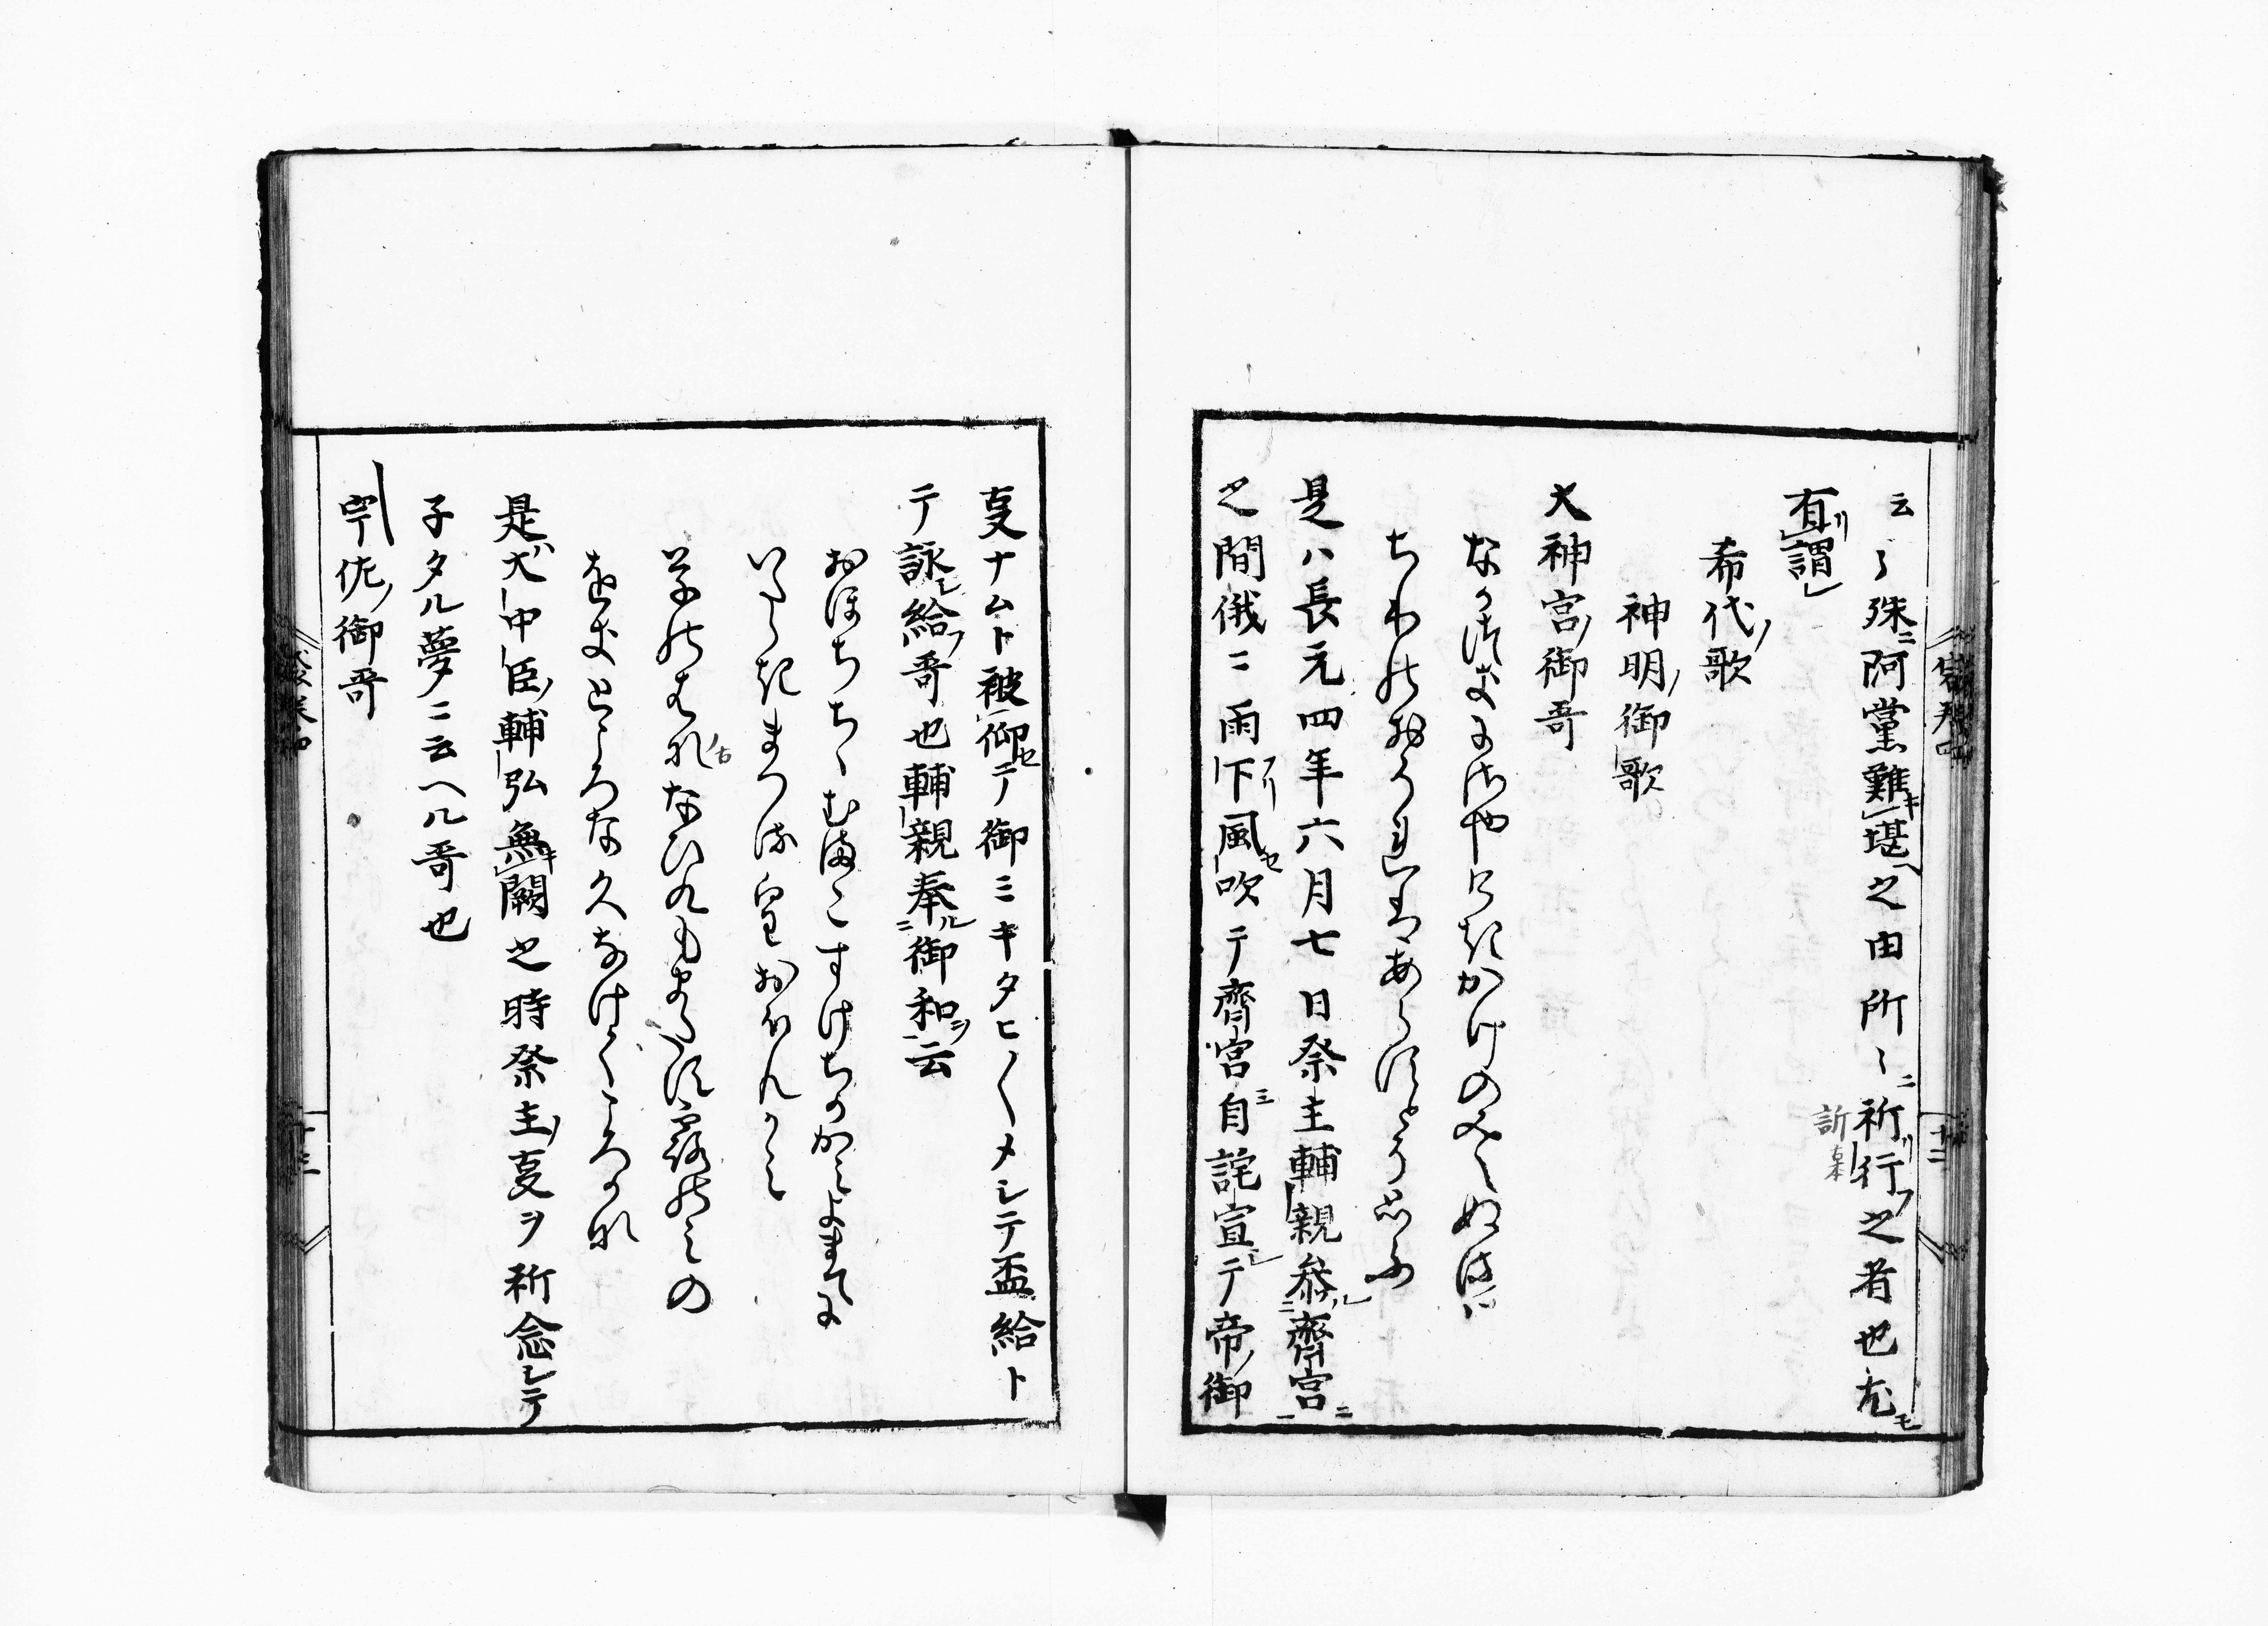 云〻殊ニ阿黨難キ堪ヘ之由所〻ニ祈リ行フ之者也尤モ
訴 古本
有リ謂レ
希代ノ歌
神明ノ御歌
大神宮ノ御哥
なかつきにみやひきかけのみえぬは
ちわれおほろけにあらしとそ思ふ
是ハ長元四年六月七日祭主輔親参ル齊宮ニ
之間俄ニ雨下リ風吹テ齊宮自詫宣シテ帝ノ御
叓ナムト被仰セテ御ミキタヒ〱メシテ盃給ト
テ詠シ給ノ哥也輔親奉ル御和ヲ云
おほちちゝむまこすけちかみよまてに
いたゝきまつるすめおほんかみ
草のはのなひくもまたす露のみの
をきところなくなけくころかな
是ハ大中臣ノ輔弘無キ闕之時祭主ノ叓ヲ祈念シテ
子タル夢ニ云ヘル哥也
宇佐ノ御哥
十二
十三